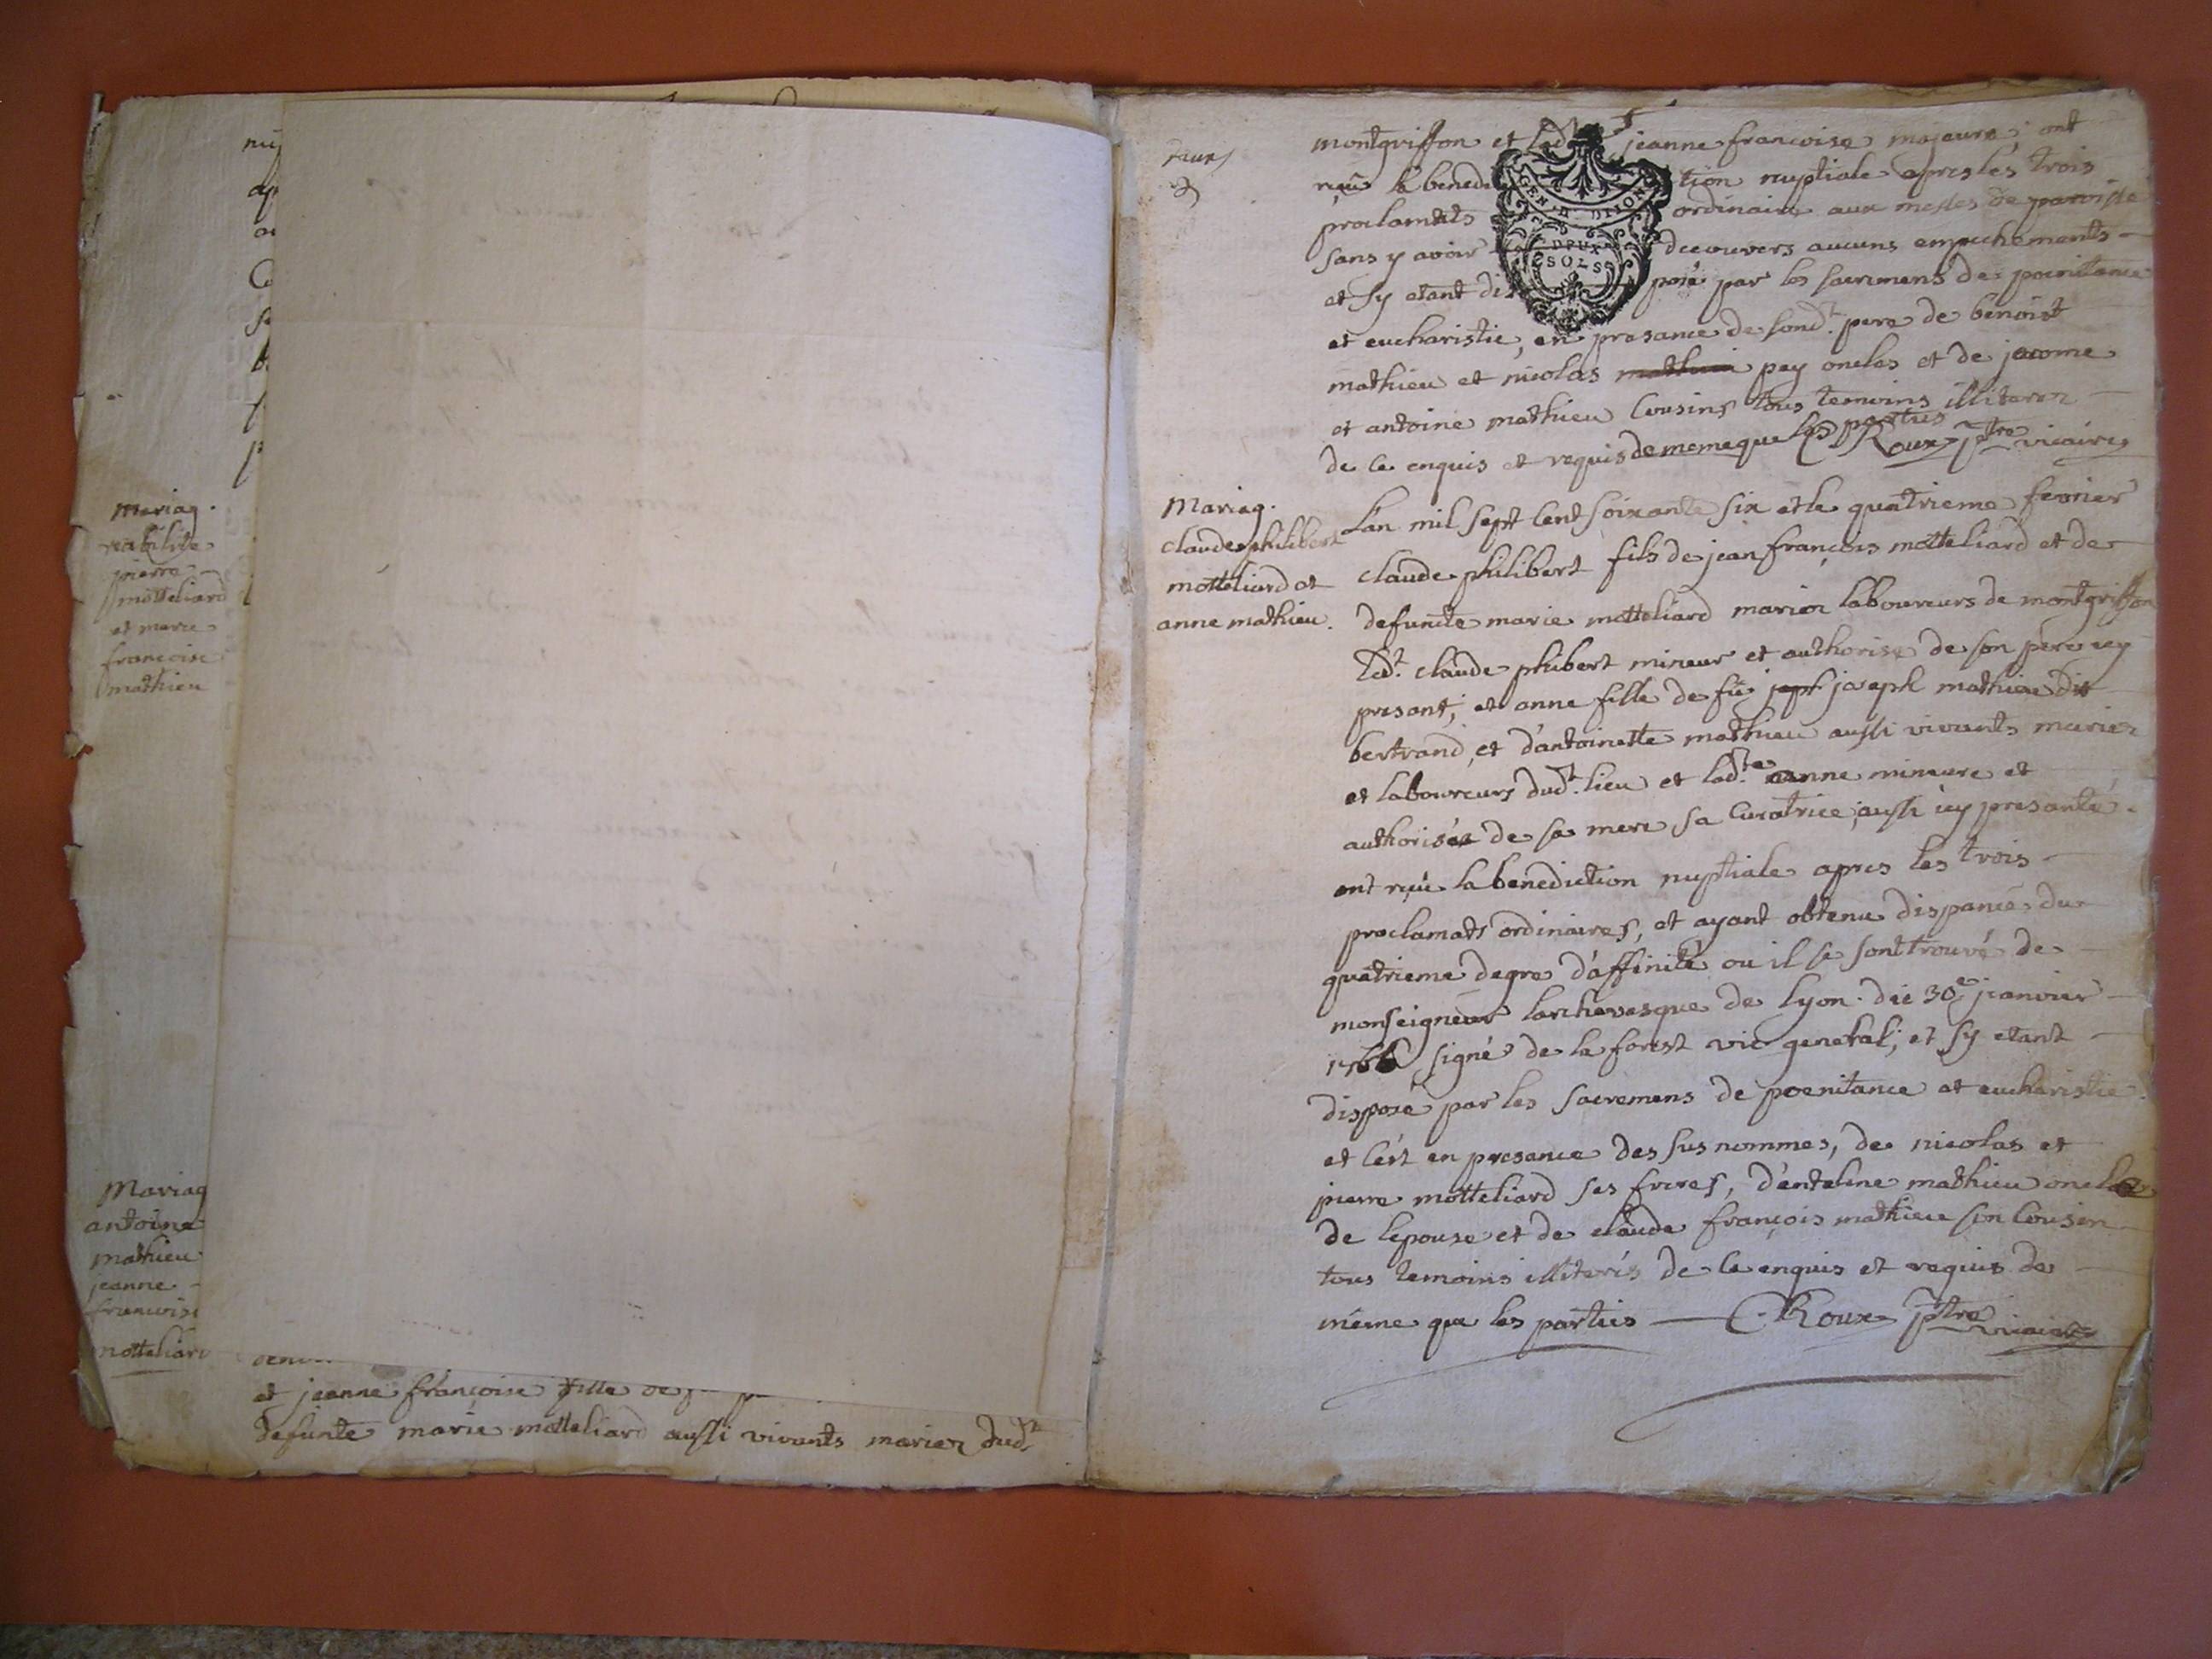 Mariag.
rabilite
pierre
motteliard
et marie
francoise
mathieu
Mariag
antoine
mathieu
jeanne
francoise
motteliard
et jeanne françoise fille de
defunte marie motteliard aussi vivants mariez dud.t
montgriffon et lad jeanne francoise majeure; ont
reçu la benediction nuptiale apres les trois
proclamats ordinaires aux messes de paroisse
sans y avoir decouvers aucuns empechements
et sy etant disposé par les sacremens de poenitance
et eucharistie, en presance de sond.t pere de benoist
mathieu et nicolas mathieu pey oncles et de jacome
et antoine mathieu Cousins tous temoins illiterez
de ce enquis et requis de meme que les parties Roux ptre vicaire
GEN. D. DIJON
DEUX
SOLS
Mariag.
claude philibert
motteliard et
anne mathieu.
L'an mil sept cent soixante six et le quatrieme fevrier
claude philibert fils de jean françois motteliard et de
defunte marie motteliard mariez laboureurs de montgriffon
led.t claude phibert mineur et authorise de son pere icy
presant; et anne fille de fû jeph joseph mathieu dit
bertrand, et d'antoinette mathieu aussi vivants mariez
et laboureurs dud.t lieu et lad.te anne mineure et
authorisée de sa mere sa Curatrice, aussi icy presante.
ont reçu la benediction nuptiale apres les trois
proclamats ordinaires, et ayant obtenu dispance du
quatrieme degre d'affinité ou il se sont trouvé de
monseigneur larchevesque de lyon. die 30e janvier
1766 signé de la forest vic general; et sy etant
disposé par les sacremens de poenitance et eucharistie.
et c'est en presance des sus nommes, de nicolas et
pierre motteliard ses freres, d'enteline mathieu oncle
de lepouse et de claude françois mathieu son Cousin
tous temoins illiterés de ce enquis et requis de
même que les parties C. Roux ptre vicaire